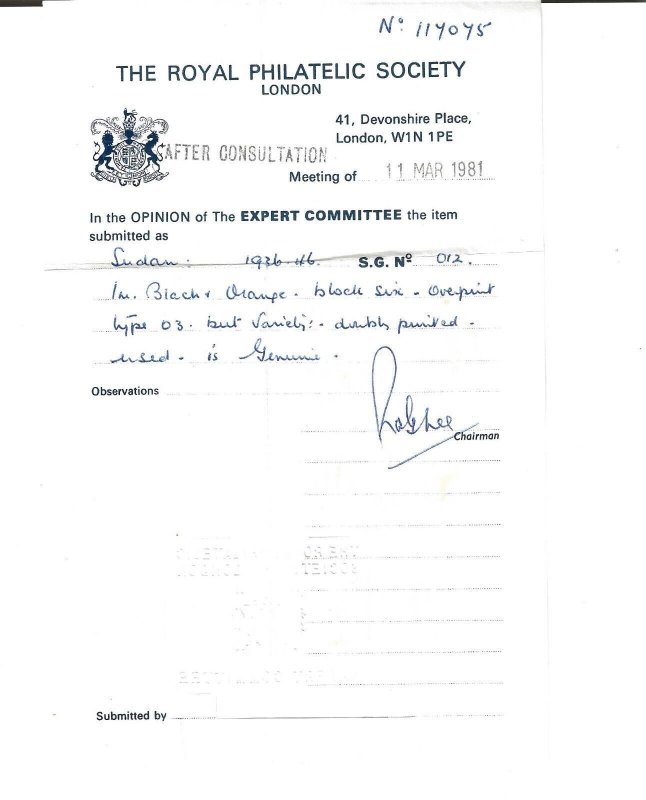 Nº 117075
THE ROYAL PHILATELIC SOCIETY
LONDON
41, Devonshire Place,
London, W1N 1PE
AFTER CONSULTATION
Meeting of 11 MAR 1981
In the OPINION of The EXPERT COMMITTEE the item
submitted as
Sudan: 1936-46. S.G. Nº 012.
1m. Black & Orange - block six - overprint
type 03. but Variety:- doubly printed -
used - is Genuine.
Observations
Chairman
Submitted by